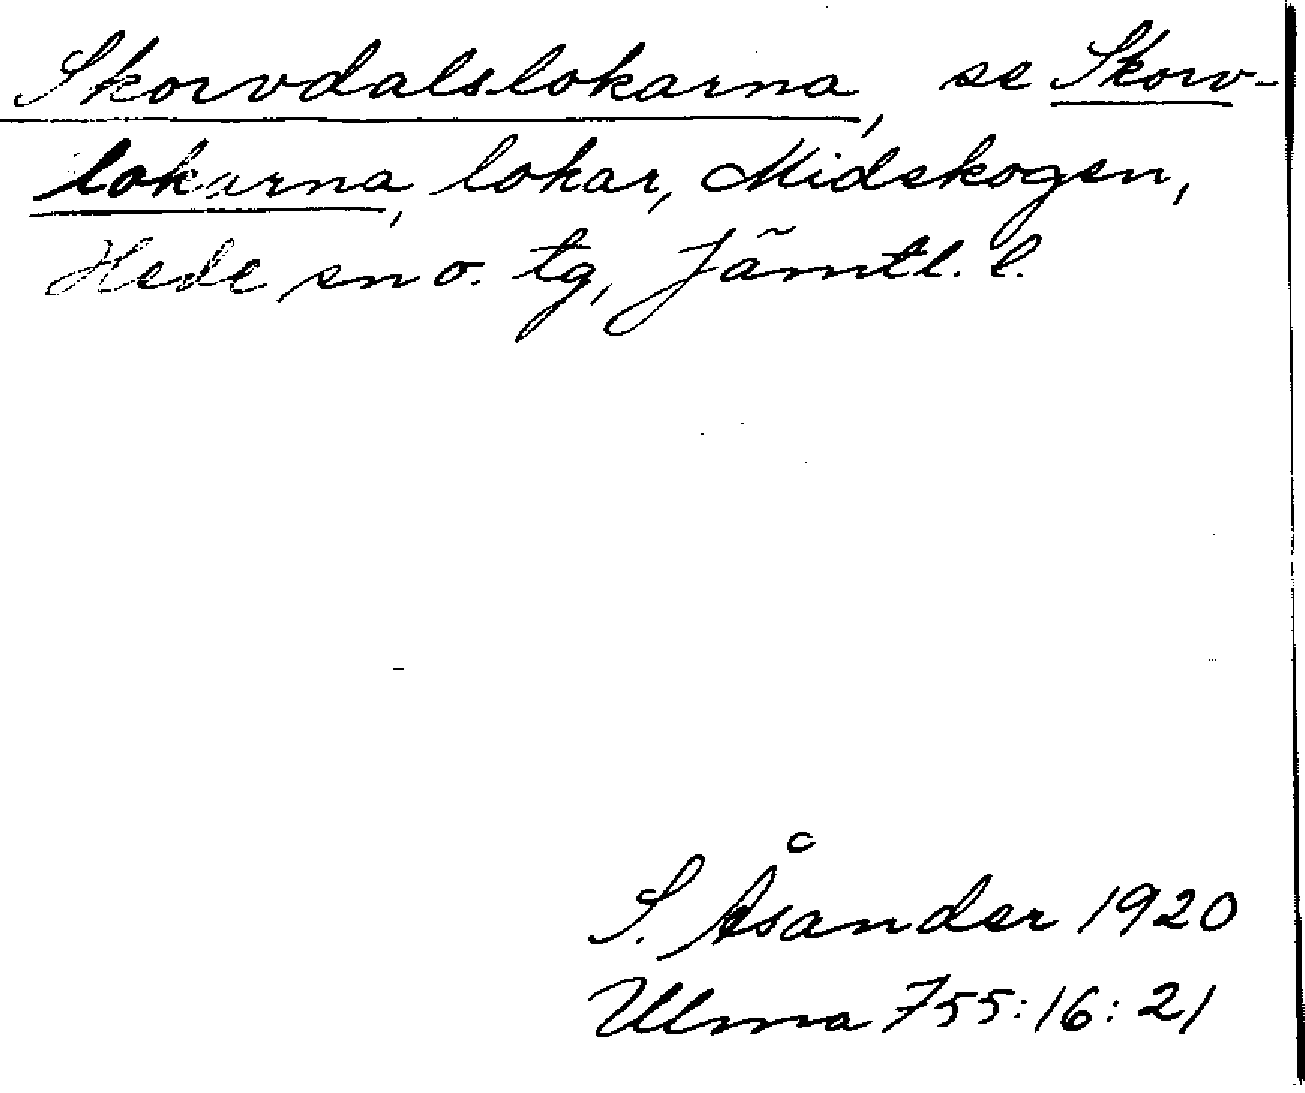 Skorvdalslokarna, se Skorv-
lokarna, lokar, Midskogen,
Hede sn o. tg, Jämtl. l.
S. Åsander 1920
Ulma 755:16:21